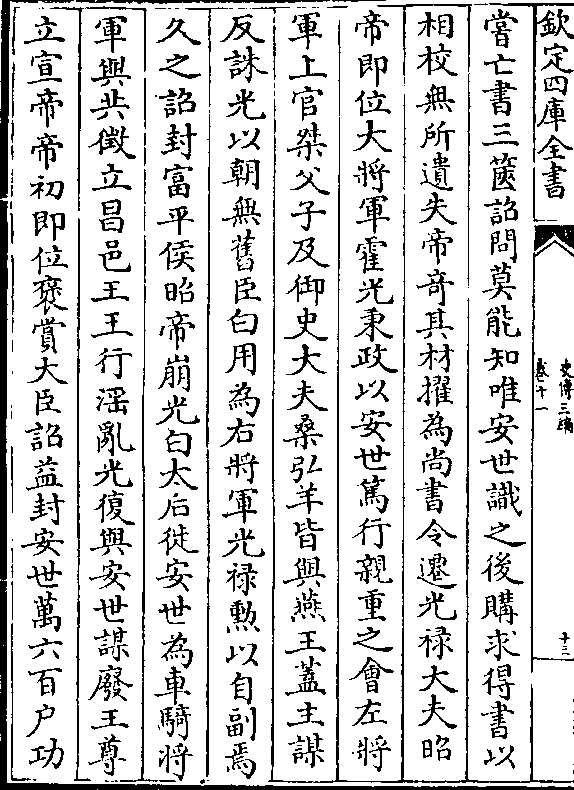 欽定四庫全書
史傳三編
卷十一
十三
嘗亡書三篋詔問莫能知唯安世識之後購求得書以
相校無所遺失帝竒其材擢為尚書令遷光禄大夫昭
帝即位大將軍霍光秉政以安世篤行親重之會左將
軍上官桀父子及御史大夫桑弘羊皆與燕王蓋主謀
反誅光以朝無舊臣白用為右將軍光禄勲以自副焉
久之詔封富平侯昭帝崩光白太后徙安世為車騎將
軍與共徵立昌邑王王行淫亂光復與安世謀廢王尊
立宣帝帝初即位褒賞大臣詔益封安世萬六百户功